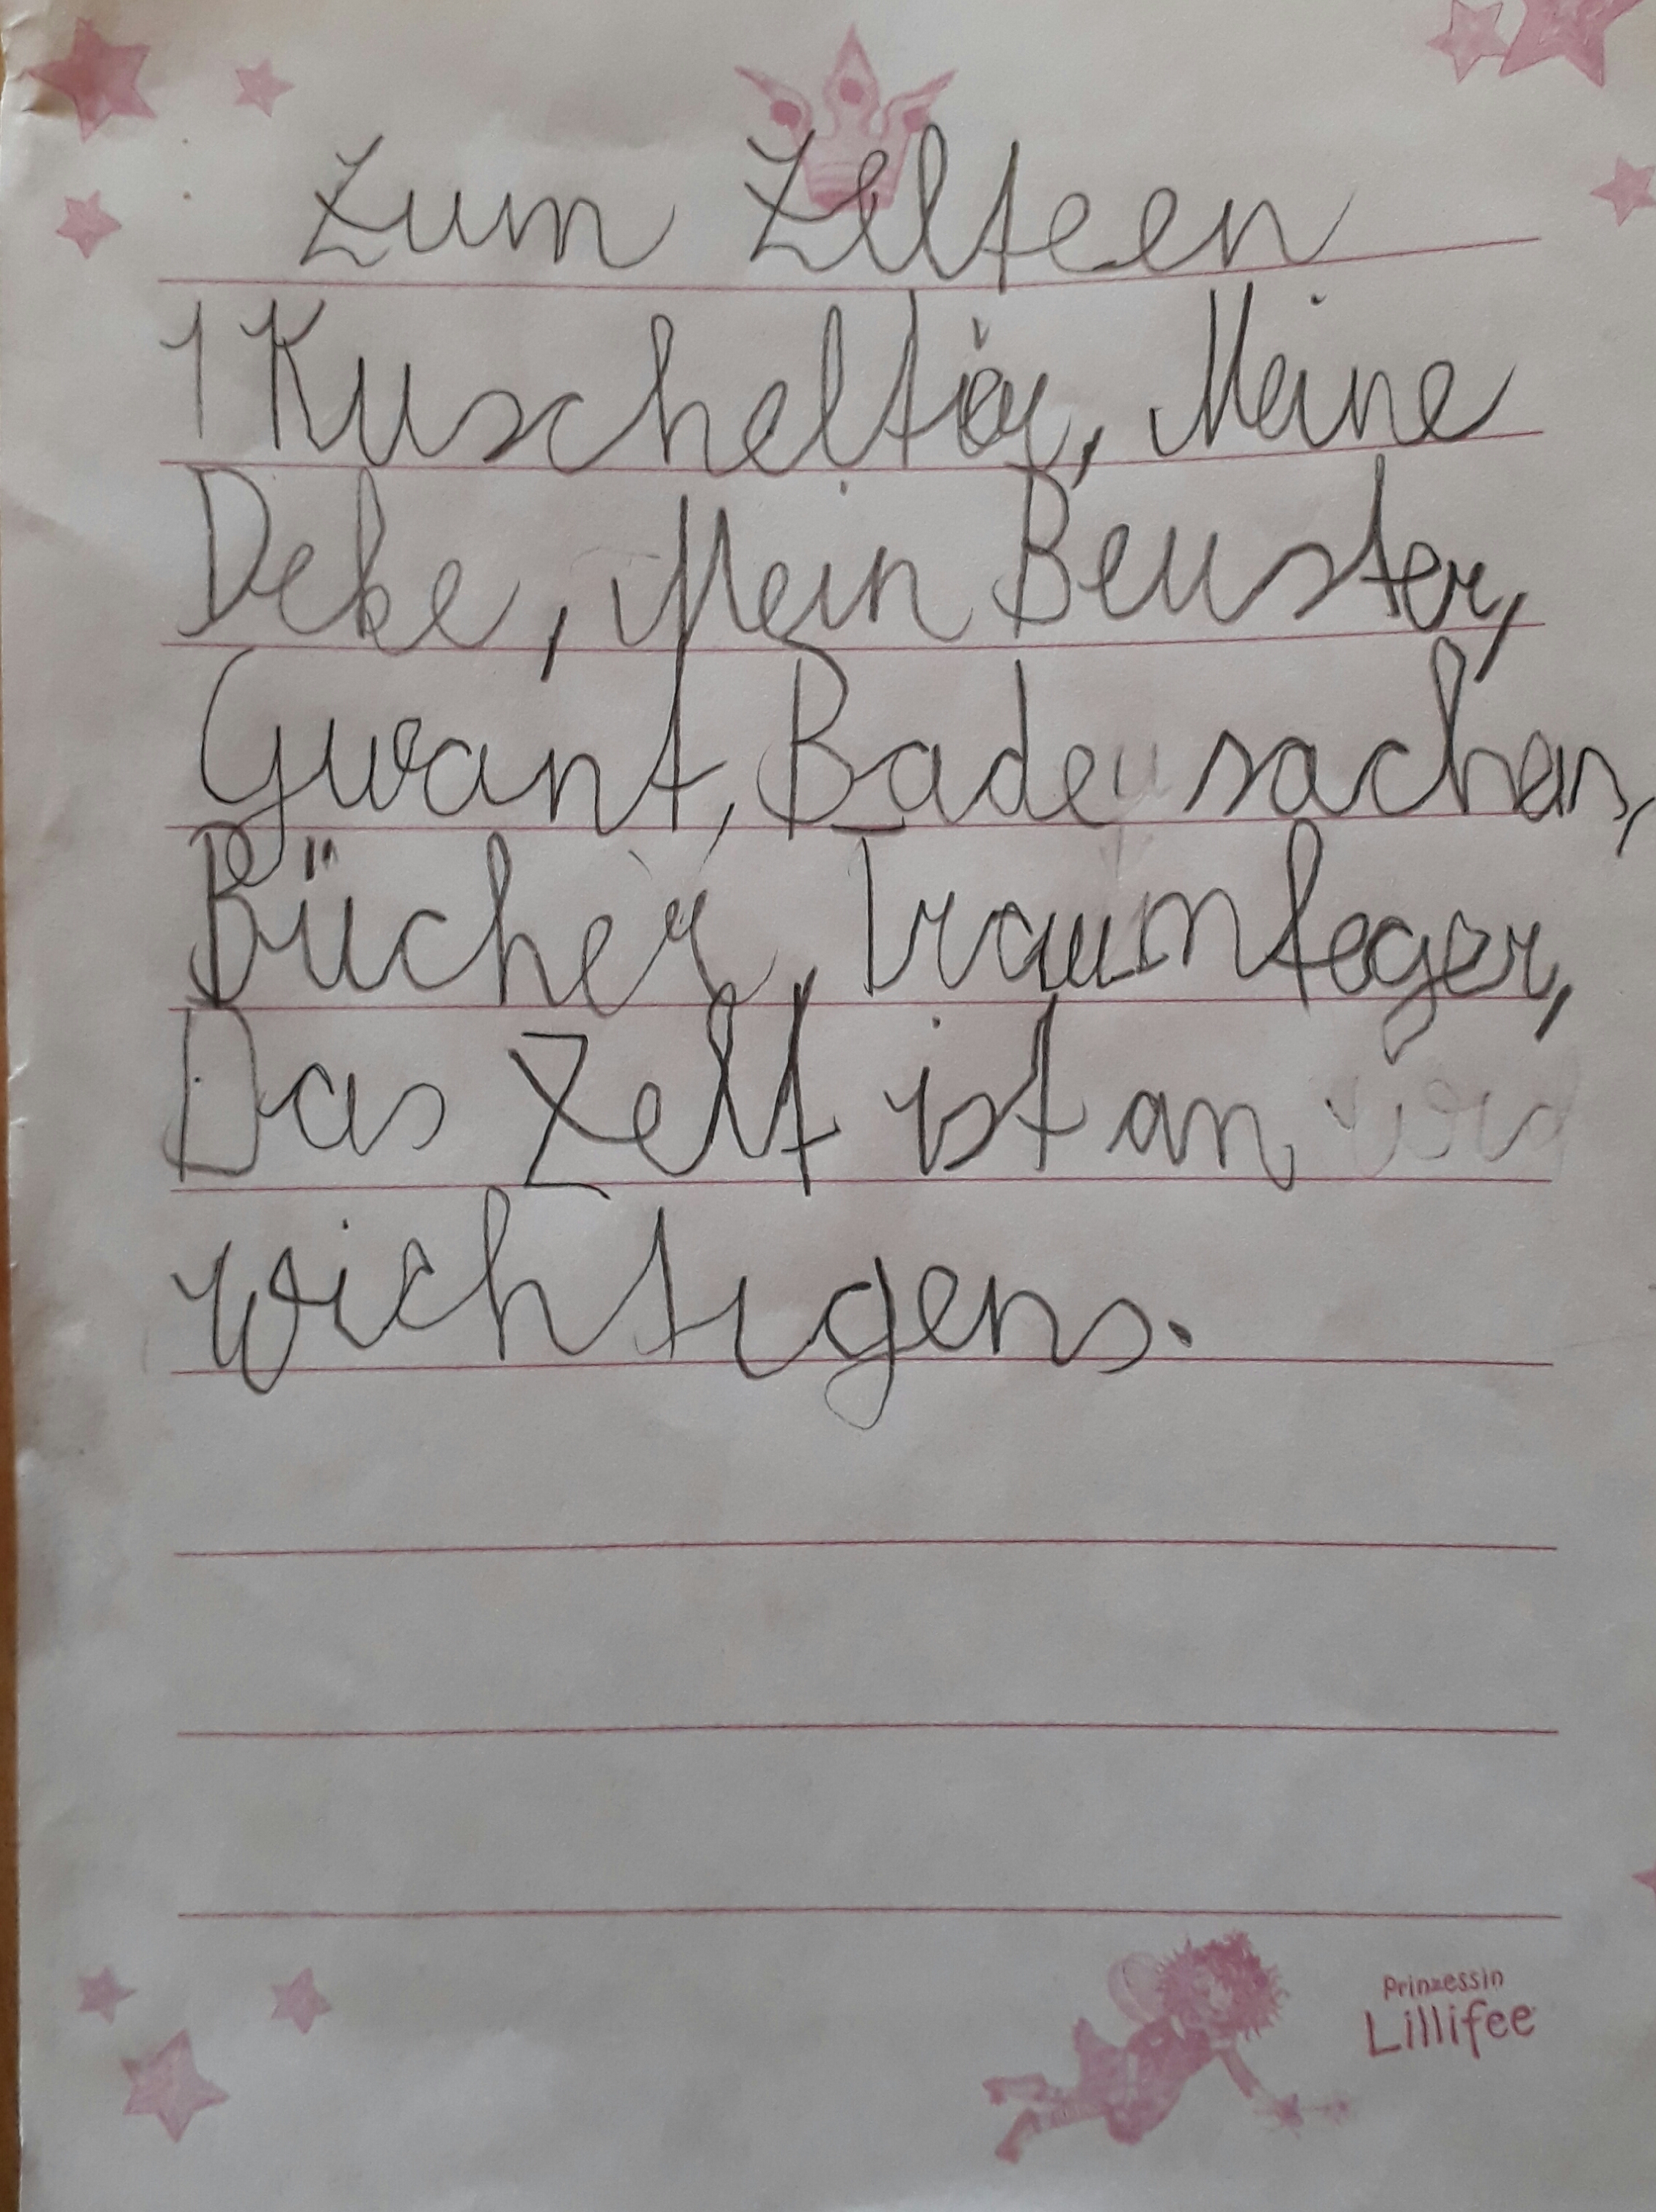 Zum Zelteen
1 Kuscheltier, Meine
Deke, Mein Beuster,
Gwant, Badesachen,
Bücher, Traumfeger,
Das Zelt ist an
wichtigens.
Prinzessin
Lillifee